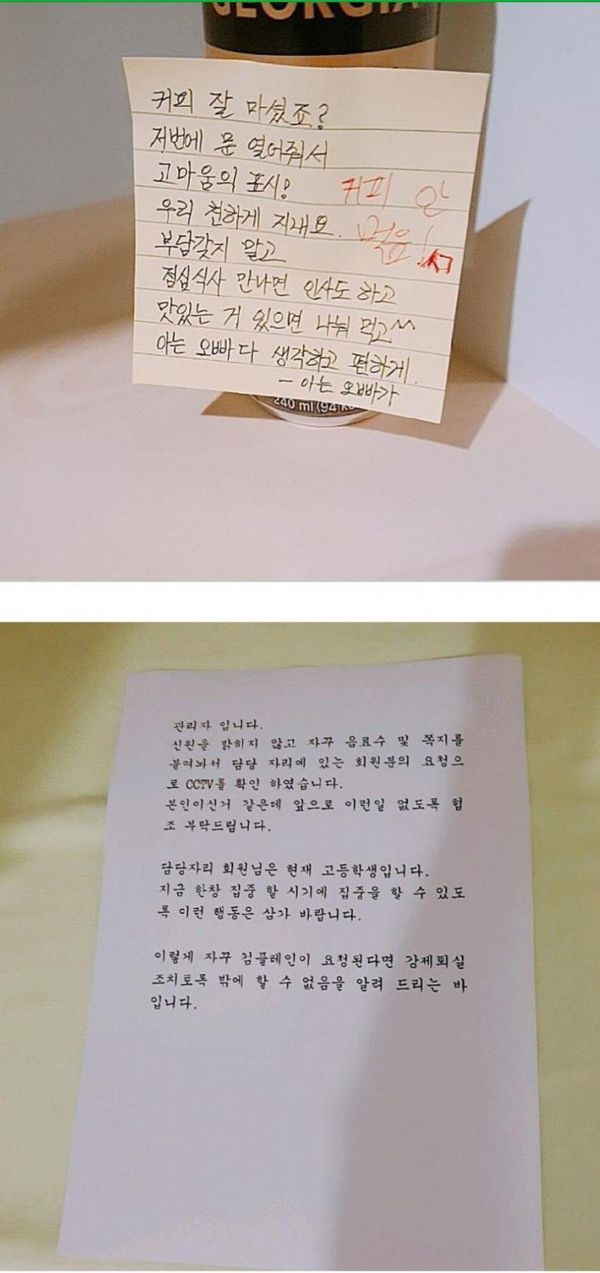 GEORGIA
커피 잘 마셨죠?
저번에 문 열어줘서
고마움의 표시!
우리 친하게 지내요.
부담갖지 말고
점심식사 만나면 인사도 하고
맛있는 거 있으면 나눠 먹고^^
아는 오빠다 생각하고 편하게.
- 아는 오빠가
커피 안
먹음!
240 ml (94 k
관리자 입니다.
신원을 밝히지 않고 자꾸 음료수 및 쪽지를
붙여놔서 담당 자리에 있는 회원분의 요청으
로 CCTV를 확인 하였습니다.
본인이신거 같은데 앞으로 이런일 없도록 협
조 부탁드립니다.
담당자리 회원님은 현재 고등학생입니다.
지금 한창 집중 할 시기에 집중을 할 수 있도
록 이런 행동은 삼가 바랍니다.
이렇게 자꾸 컴플레인이 요청된다면 강제퇴실
조치토록 밖에 할 수 없음을 알려 드리는 바
입니다.